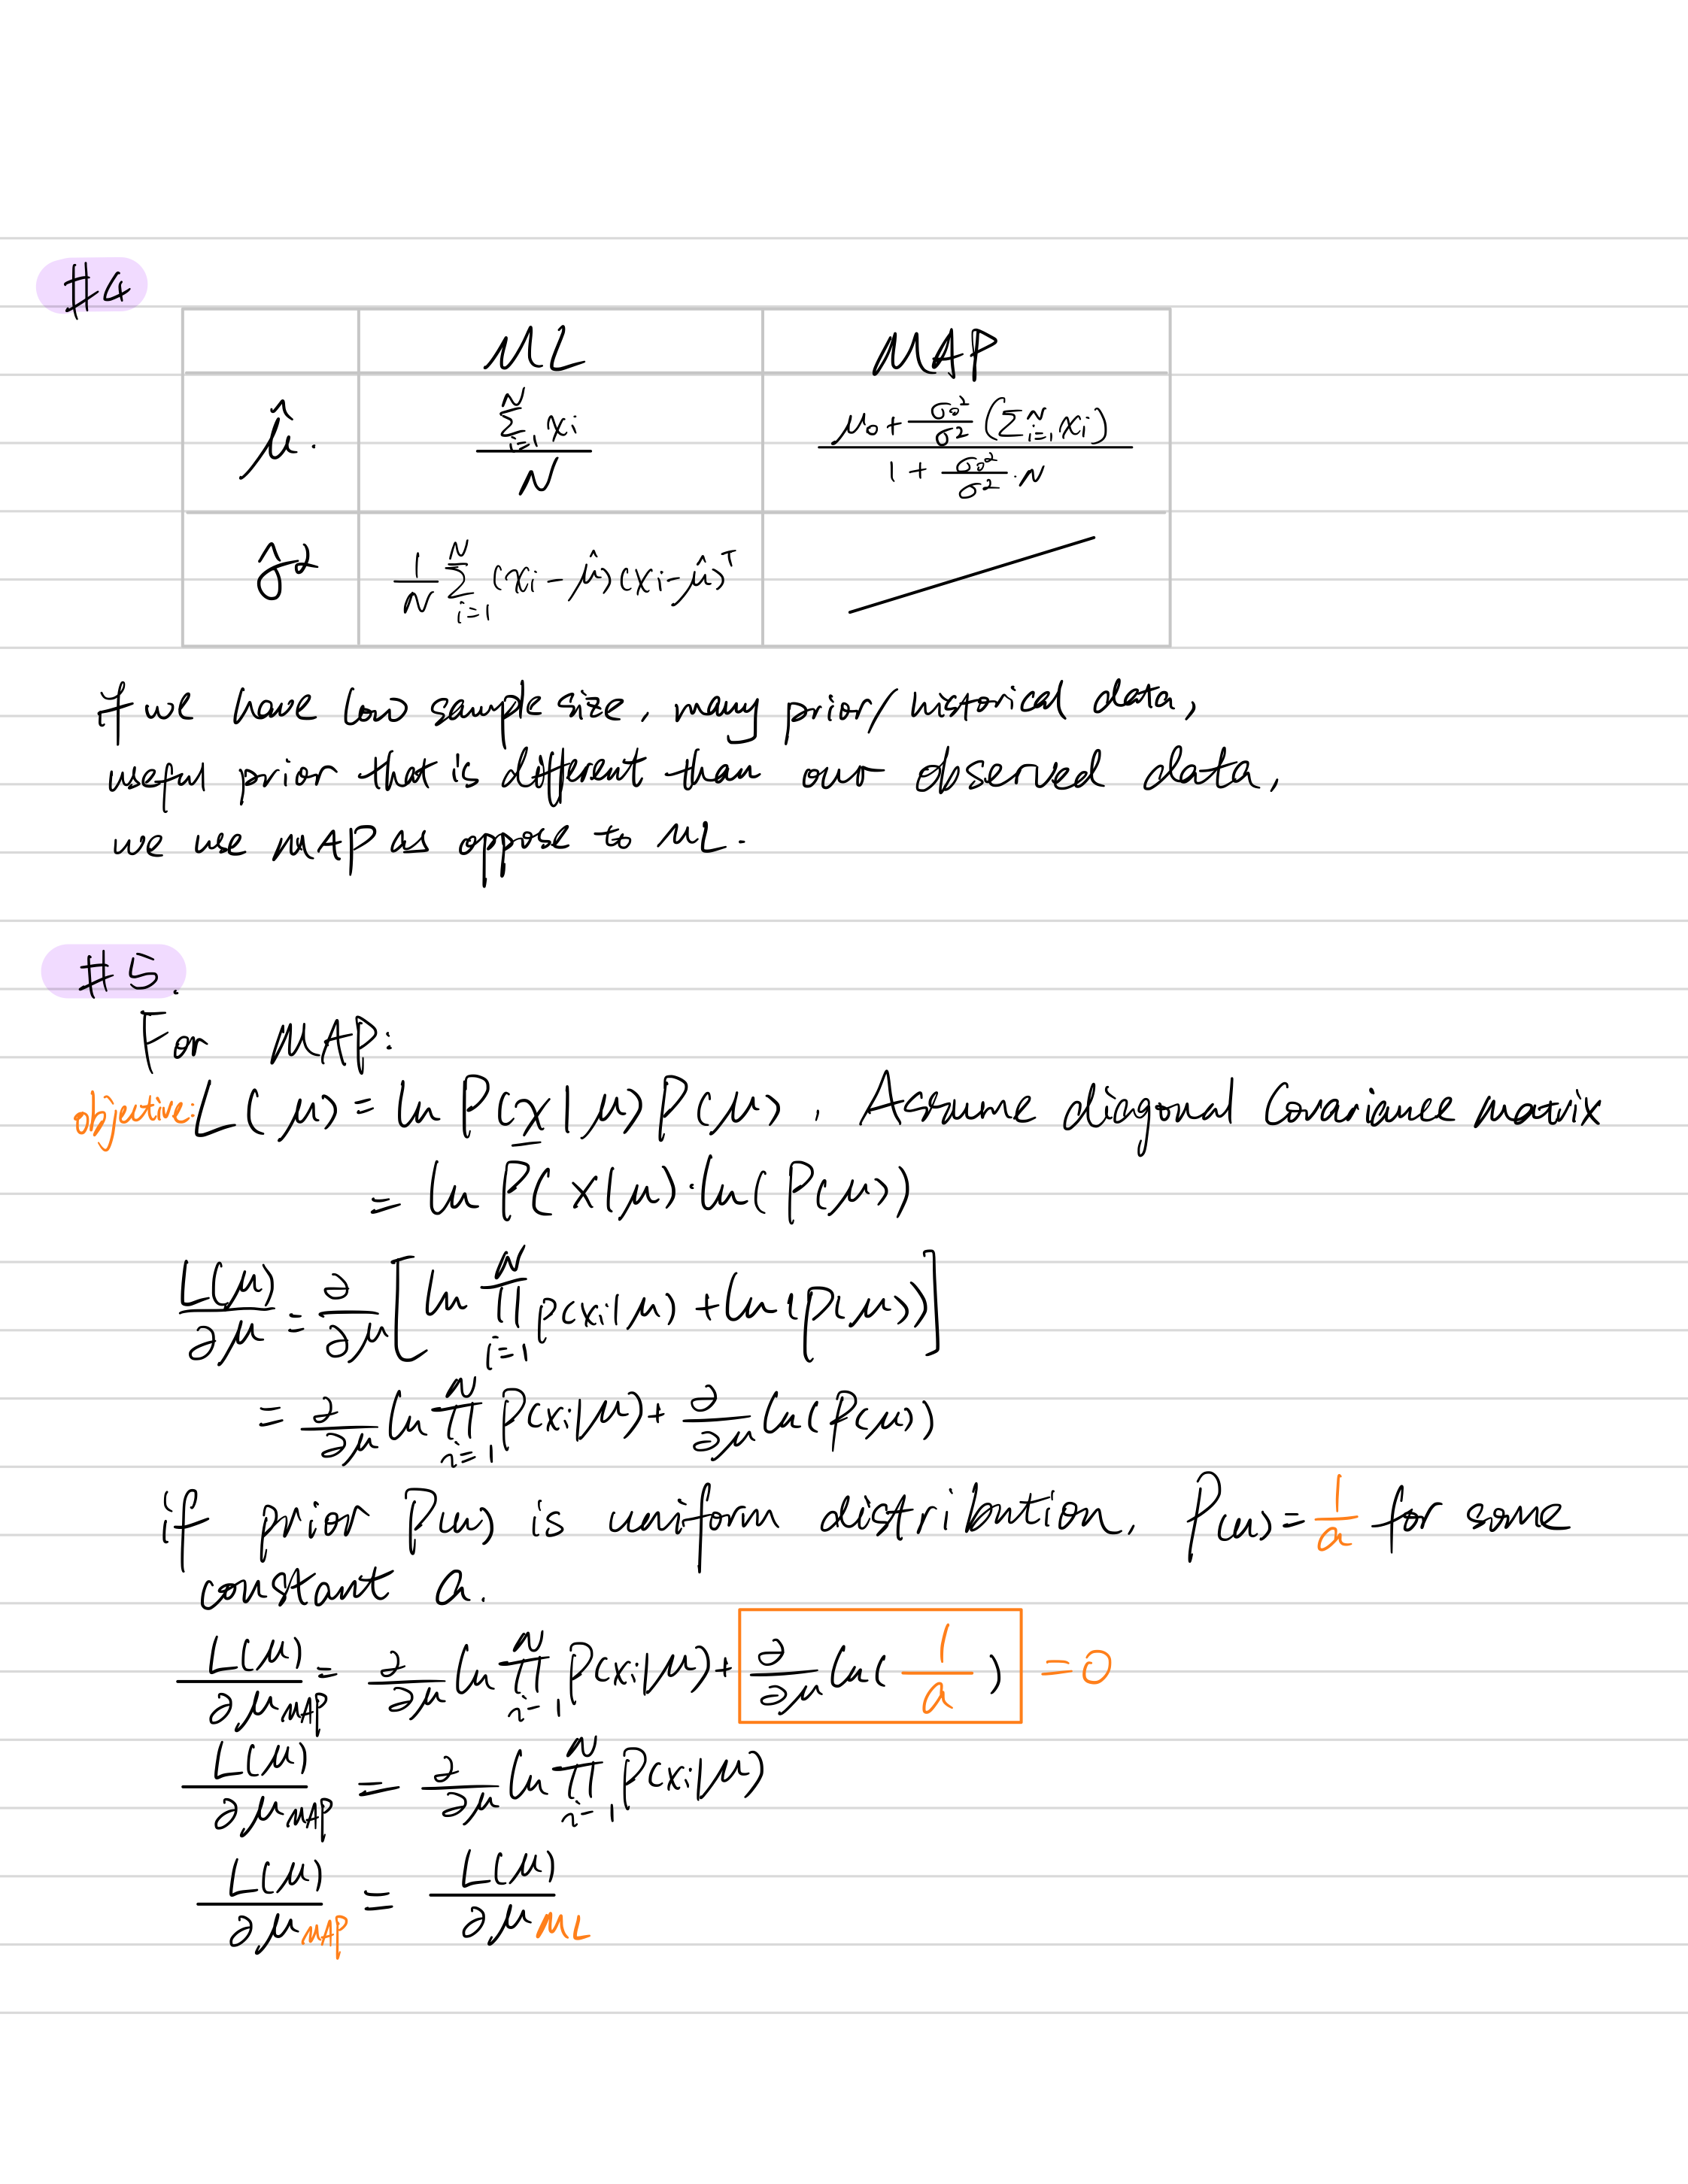 #4
ML MAP
μ̂. \frac{\sum_{i=1}^{N} x_i}{N} \frac{μ_0 + \frac{σ_0^2}{σ^2} (\sum_{i=1}^{N} x_i)}{1 + \frac{σ_0^2}{σ^2} · N}
σ̂^2 \frac{1}{N} \sum_{i=1}^{N} (x_i - μ̂)(x_i - μ̂)^T
if we have low sample size, many prior/historical data,
useful prior that is different than our observed data,
we use MAP as oppose to ML.
#5.
For MAP:
objective: L(μ) = ln P(\underline{x}|μ) P(μ), Assume diagonal Covariance matrix
= ln P(x|μ) · ln(P(μ))
\frac{L(μ)}{∂μ} = \frac{∂}{∂μ} [ ln \prod_{i=1}^{N} p(x_i|μ) + ln(p(μ)) ]
= \frac{∂}{∂μ} ln \prod_{i=1}^{N} P(x_i|μ) + \frac{∂}{∂μ} ln(P(μ))
if prior P(μ) is uniform distribution, P(μ) = \frac{1}{a} for some
constant a.
\frac{L(μ)}{∂μ_{MAP}} = \frac{∂}{∂μ} ln \prod_{i=1}^{N} P(x_i|μ) + \frac{∂}{∂μ} ln(\frac{1}{a}) = 0
\frac{L(μ)}{∂μ_{MAP}} = \frac{∂}{∂μ} ln \prod_{i=1}^{N} P(x_i|μ)
\frac{L(μ)}{∂μ_{MAP}} = \frac{L(μ)}{∂μ_{ML}}